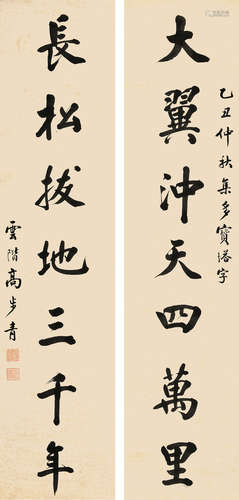 大翼沖天四萬里
乙丑仲秋集多寶塔字
長松拔地三千年
雲階高步青